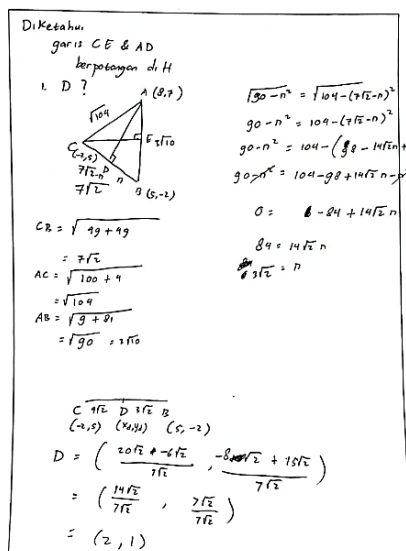 Diketahui
garis CE & AD
berpotongan di H
1. D ?
A (8,7)
√104
E 3√10
C
(-2,5)
D
7√2-n
n
7√2
B (5,-2)
CB = √49+49
= 7√2
AC = √100+4
= √104
AB = √9+81
= √90 = 3√10
√90-n² = √104-(7√2-n)²
90-n² = 104-(7√2-n)²
90-n² = 104-(98-14√2n+
90-n² = 104-98+14√2n-n
0 = -84+14√2n
84 = 14√2n
3√2 = n
C 4√2 D 3√2 B
(-2,5) (xd,yd) (5,-2)
D = (20√2+-6√2/7√2, -8√2+15√2/7√2)
= (14√2/7√2, 7√2/7√2)
= (2,1)